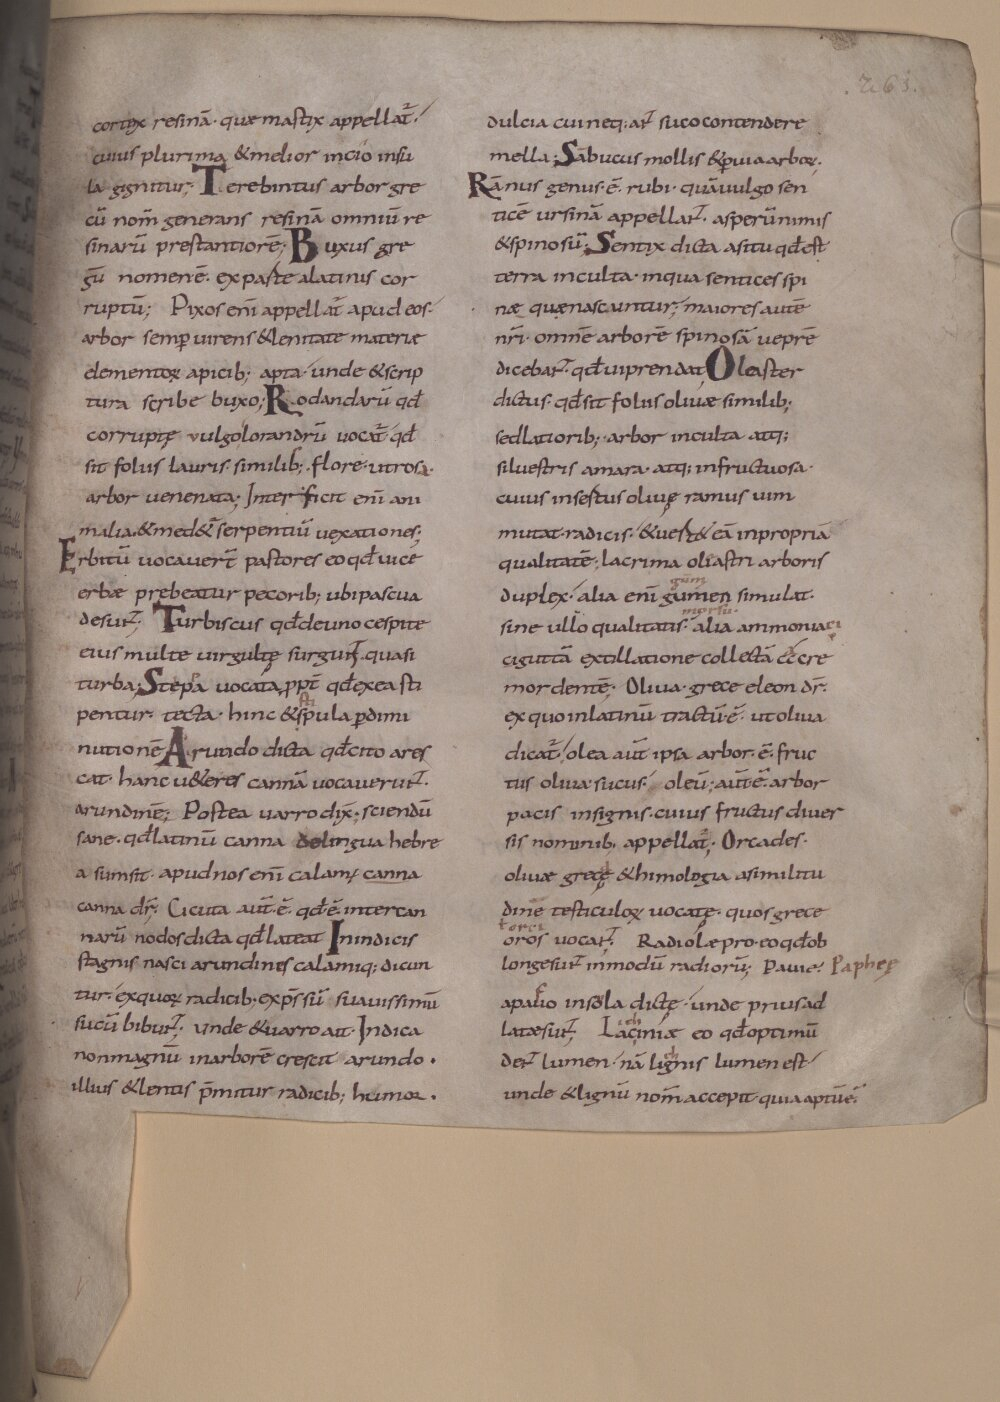 .263.
cortex resinā· quæ mastix appellat̄·
cuius plurima &melior inchio insu
la gignitur; Terebintus arbor gre
cū nom̄ generans resinā omniū re
sinarū prestantiorē; Buxus gre
gū nomen ē· ex parte alatinis cor
ruptū; Pixos eni appellat̄ apud eos·
arbor semp̄ uirens &lenitate materiæ
elementoꝝ apicib; apta· unde &scrip
tura scribe buxo; Rodandarū qđ
corruptę vulgo lorandrū uocat̄ qđ
sit foliis lauris similib; flore ut rosa·
arbor uenenata; Interficit eni ani
malia· &med&̄ serpentiū uexationes;
Erbitū vocaver̄t pastores eo qđ uice
erbæ prebeatur pecorib; ubi pascua
desut̄; Turbiscus qđ de uno cespite
eius multe uirgultę surgut̄· quasi
turba; Stepa vocata ꝓpt̄ qđ exea sti
pentur· tecta· hinc &stipula ꝑ dimi
nutionē Arundo dicta qđ cito ares
cat· hanc u&eres cannā vocaverut̄·
arundinē; Postea varro dix̄; sciendū
sane· qđ latinū canna delingua hebre
a sumsit· apud nos eni calamꝰ canna
canna dr̄; Cicuta aut̄ ē· qđ ē inter can
narū nodos dicta qđ lateat In indicis
stagnis nasci arundines calamiq; dicun
tur· ex quoꝝ radicib; exp̄ssiū suavissimū
sucū bibut̄; unde &varro ait· Indica
non magnū in arborē crescit arundo·
illius &lentis p̄mitur radicib; humor·
dulcia cui neq; at̄ suco contendere
mella; Sābucus mollis &ꝑuia arboꝝ;
Rānus genus· ē· rubi· quā vulgo sen
ticē ursinā appellat̄· asperū nimis
&spinosū; Sentix dicta a situ qđ est
terra inculta· in qua sentices spi
næ quę nascuntur; maiores autē
nr̄i· omnē arborē spinosā veprē
dicebat̄· qđ vi prendat; Oleaster
dictus· qđ sit foliis olivæ similib;
sed latiorib; arbor inculta atq;
silvestris amara· atq; infructuosa·
cuius insestus olivę ramus vim
mutat· radicis· &vert& eā in propriā
qualitatē; lacrima oliastri arboris
gūm
duplex· alia eni gumen simulat·
morsu·
sine ullo qualitatis· alia ammoniaci
ci guttā extillatione collectā
mordentē; Oliva· grece eleon dr̄·
ex quo in latinū tractū· ē· ut oliva
dicat̄· olea aut̄ ipsa arbor· ē· fruc
tus oliva· sucus· oleū; aut̄ ē arbor
pacis insignis· cuius fructus diver
sis nominib; appellat̄; Orcades·
olivæ grecę &himologia a similitu
dine testiculoꝝ vocatę· quos grece
ł orci
oros vocat̄; Radiolæ pro eo qđ ob
longe sut̄ in modū radiorū; Pavie· Paphęę
a paiio insola dictę· unde prius ad
latæ sut̄; Laciniæ eo qđ optimū
det̄ lumen· nā lignis lumen est·
unde &lignū nom̄ accepit quia aptū ē·